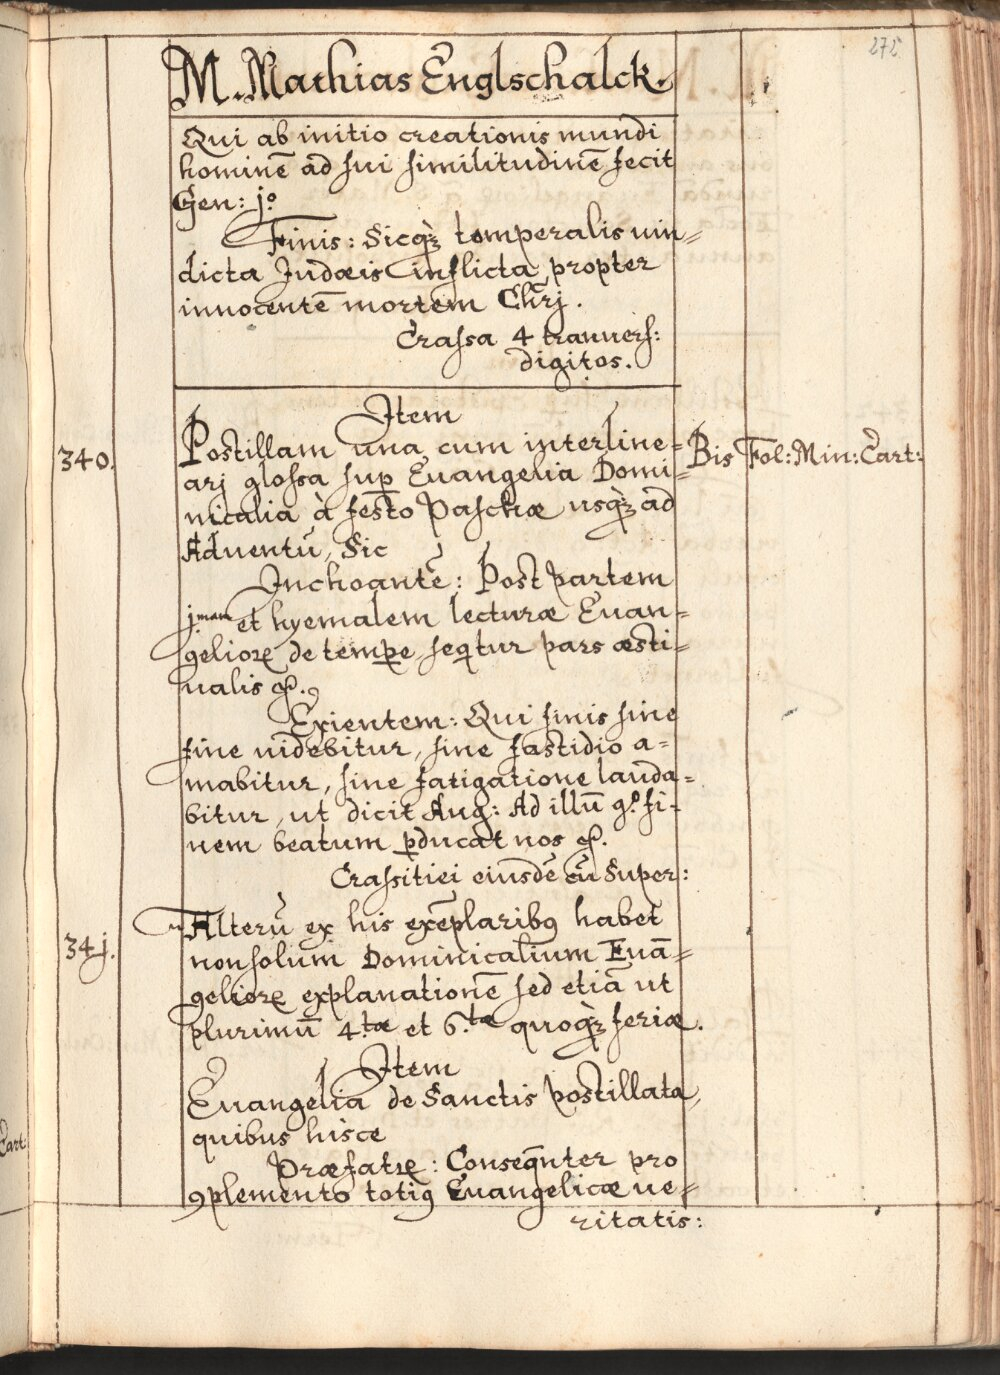 272
M. Mathias Englschalck.
Qui ab initio creationis mundi
hominē ad sui similitudinē fecit
Gen: j.º
Finis: Sicq́ꝫ temperalis uin=
dicta Judæis inflicta propter
innocentē mortem Chrj.
Crassa 4 tranuers:
digitos.
Item
340.
Postillam una cum interline=
arj glossa sup Euangelia Domi=
nicalia à festo Paschæ usq́ꝫ ad
Aduentū, Sic
Bis Fol: Min: Cart:
Inchoantē: Post partem
j.mam et hyemalem lecturæ Euan=
gelioꝝ de tempꝑe, seqtur pars æsti=
ualis &.
Exientem: Qui finis sine
fine uidebitur, sine fastidio a=
mabitur, sine fatigatione lauda=
bitur, ut dicit Aug: Ad illū gº. fi=
nem beatum ꝑducat nos &.
Crassitiei eiusdē cū Super:
34j.
Alterū ex his exēplaribꝯ habet
non solum Dominicalium Euā=
gelioꝝ explanationē sed etiā ut
plurimū 4.tæ et 6.tæ quoq́ꝫ feriæ.
Item
Euangelia de Sanctis postillata,
quibus hisce
Præfatꝝ: Conseqn̄ter pro
ꝯplemento totiꝯ Euangelicæ ue=
ritatis:
Cart: